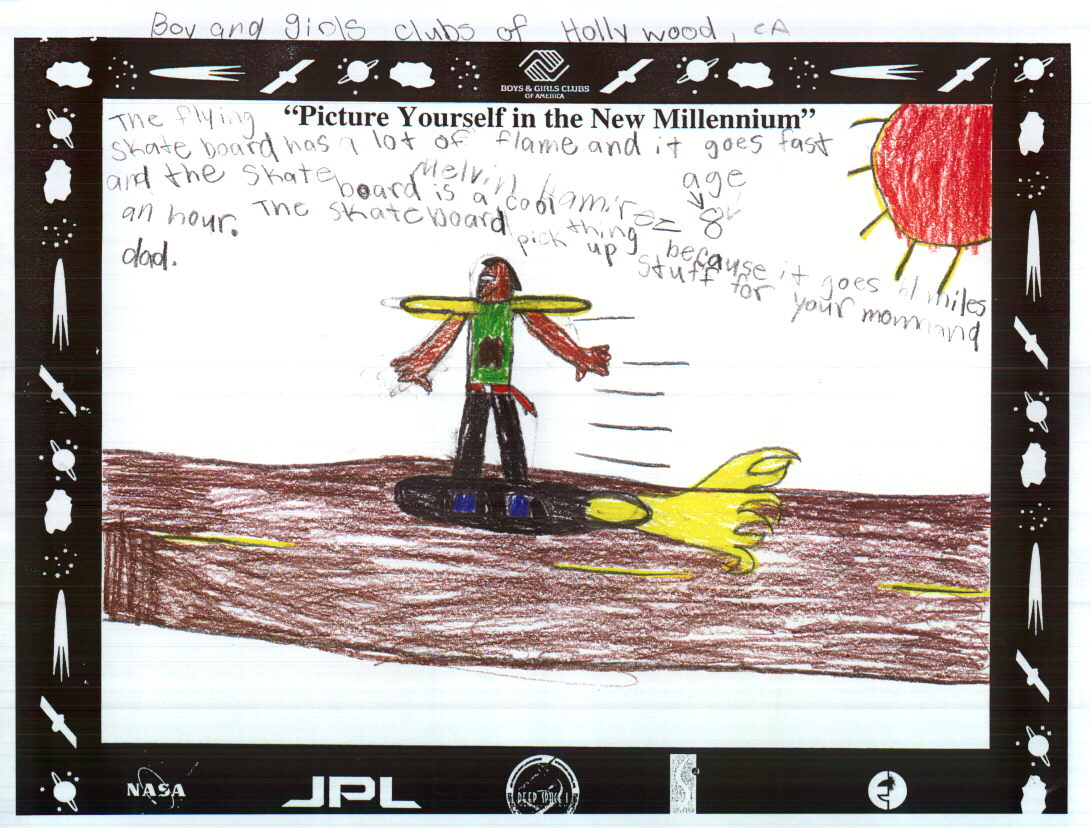 Boy and girls clubs of Hollywood, CA
BOYS & GIRLS CLUBS
OF AMERICA
“Picture Yourself in the New Millennium”
The flying
skate board has a lot of flame and it goes fast
and the skate board is a cool thing because it goes miles
an hour. The skateboard pick up stuff for your mom and
dad.
Melvin Ramirez age 8
NASA
JPL
DEEP SPACE 1